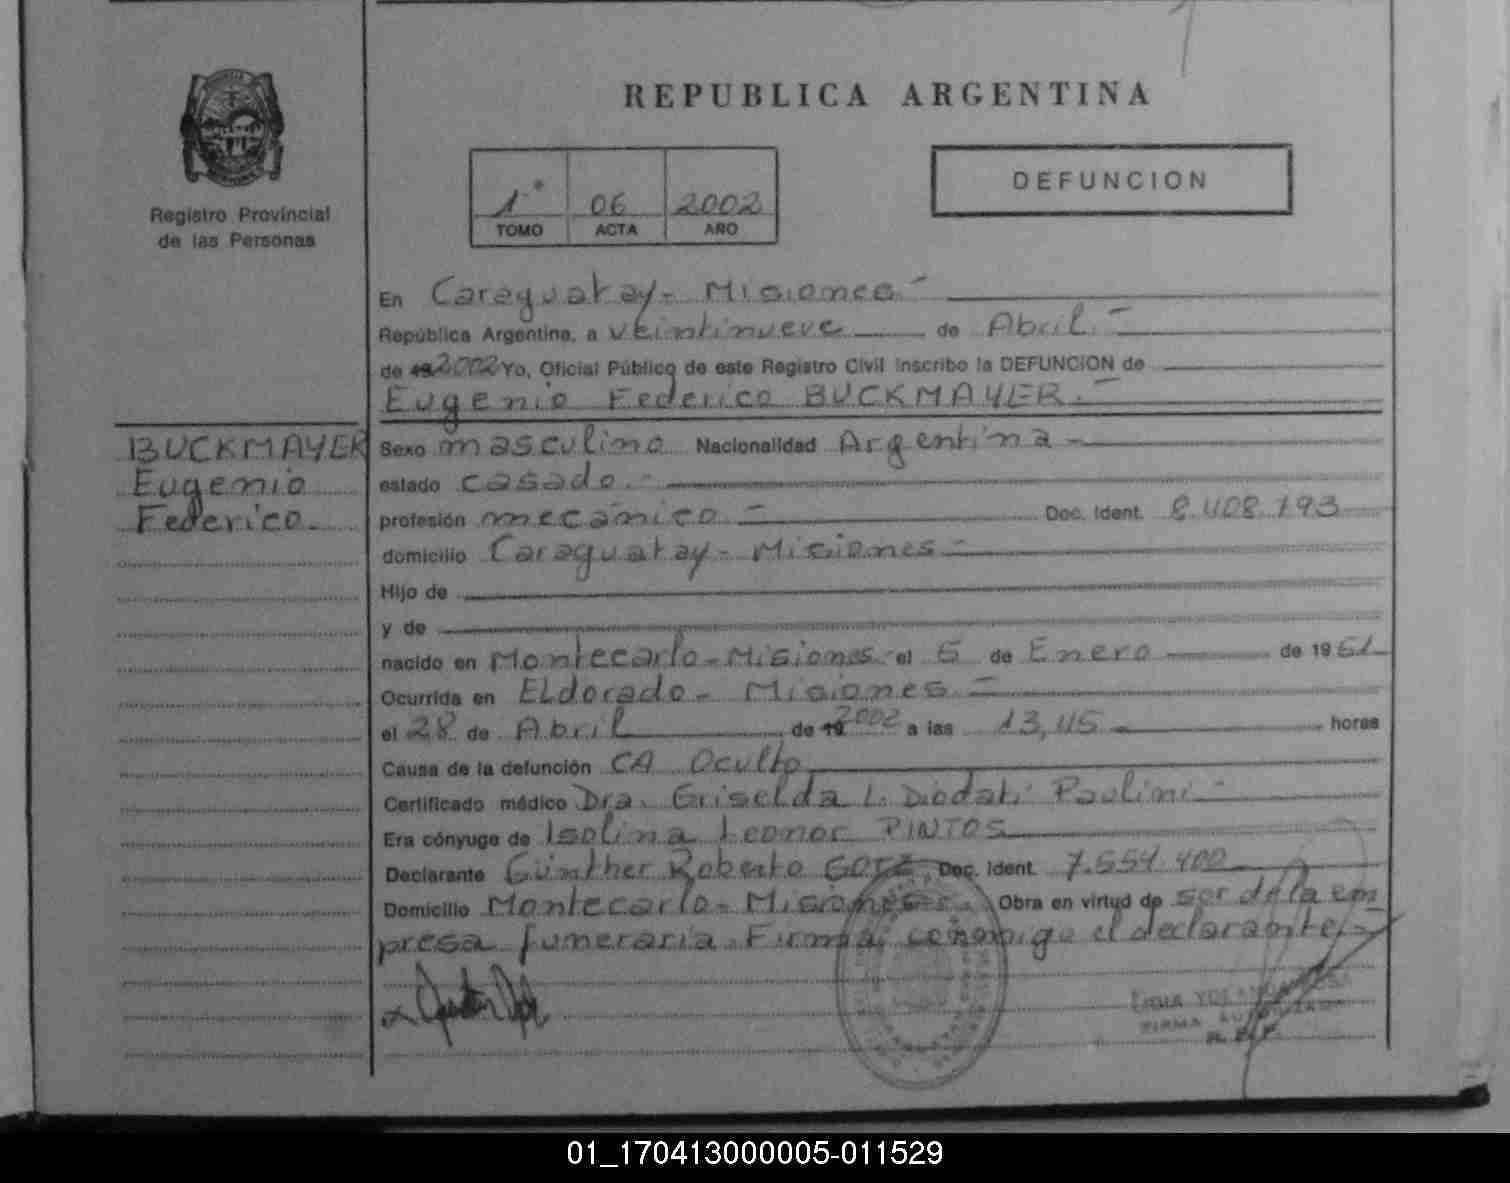 REPUBLICA ARGENTINA
Registro Provincial
de las Personas
1° 06 2002
TOMO ACTA AÑO
DEFUNCION
En Caraguatay - Misiones -
República Argentina, a veintinueve de Abril. -
de 19 2002 Yo, Oficial Público de este Registro Civil inscribo la DEFUNCION de
Eugenio Federico BUCKMAYER. -
BUCKMAYER
Eugenio
Federico.
Sexo masculino Nacionalidad Argentina -
estado casado. -
profesión mecánico - Doc. Ident. 8.408.193
domicilio Caraguatay - Misiones -
Hijo de
y de
nacido en Montecarlo - Misiones el 5 de Enero de 1951
Ocurrida en Eldorado - Misiones -
el 28 de Abril de 19 2002 a las 13,45 horas
Causa de la defunción CA Oculto
Certificado médico Dra. Griselda L. Diodati Paolini -
Era cónyuge de Isolina Leonor PINTOS
Declarante Günther Roberto Doc. Ident. 7.554.400
Domicilio Montecarlo - Misiones. Obra en virtud de ser de la em
presa funeraria. Firma conmigo el declarante. -
FIRMA
01_170413000005-011529